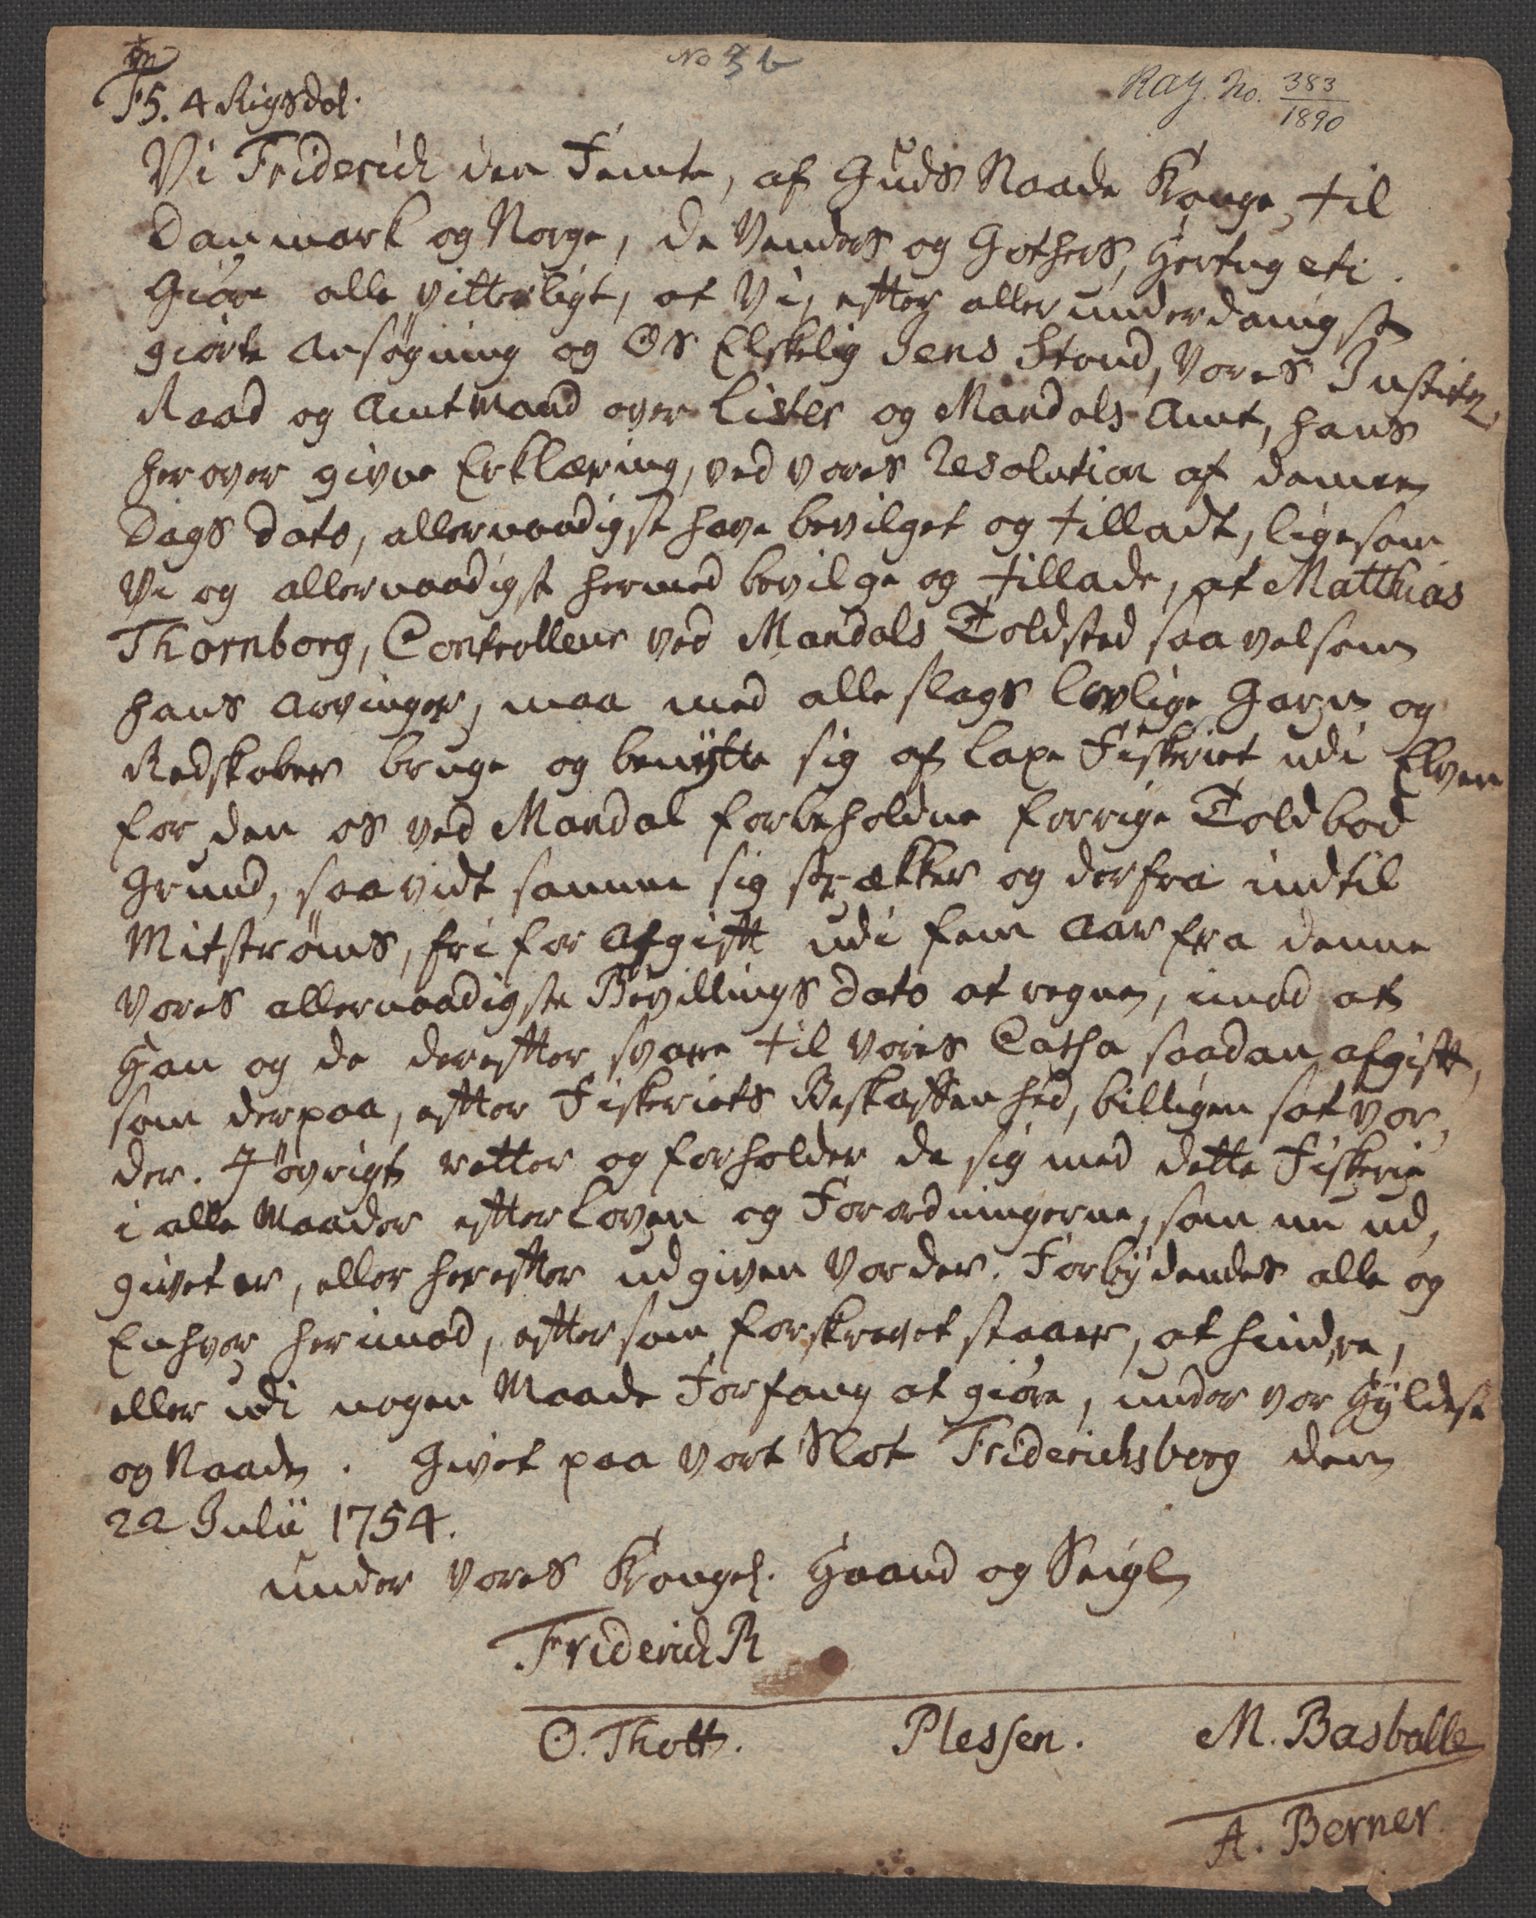 No 3 b
Ray. No. 383/1890
F5. 4 Rigsdol.
Vi Friderich den Femte, af Guds Naade Konge til
Danmark og Norge, de Venders og Gothers, Hertug etc.
Giøre alle vitterligt, at Vi, efter allerunderdanigst
giorte Ansøgning og Os Elskelig Jens Stoud, Vores Justitz
Raad og Amtmand over Lister og Mandals Amt, hans
herover givne Erklæring, ved vores Resolution af denne
Dags Dato, allernaadigst have bevilget og tilladt, ligesom
Vi og allernaadigst hermed bevilge og tillade, at Matthias
Thornborg, Controlleur ved Mandals Toldsted saavelsom
hans Arvinger, maa med alle slags lovlige Garn og
Redskaber bruge og benÿtte sig af Laxe Fiskeriet udi Elven
for den os ved Mandal forbeholdne forrige Toldbod
Grund, saavidt samme sig strækker og derfra indtil
Mitstrøms, fri for Afgift udi fem Aar fra denne
Vores allernaadigste Bevillings Dato at regne, imod at
Han og de derefter svare til Vores Cassa saadan afgift,
som derpaa, efter Fiskeriets Beskaffenhed, billigen sat vor,
der. I øvrigt retter og forholder de sig med dette Fiskerie
i alle Maader efter Loven og Forordningerne, som nu ud,
givet er, eller herefter udgiven vorder. Forbÿdendes alle og
Enhver herimod, eftersom forskrevet staaer, at hindre,
eller udi nogen Maade Forfang at giøre, under vor Hÿldest
og Naade. Givet paa vort Slot Friderichsberg den
22 Julii 1754.
under Vores Kongel. Haand og Seigl
Friderich R
O. Thott. Plessen. M. Basballe
A. Berner